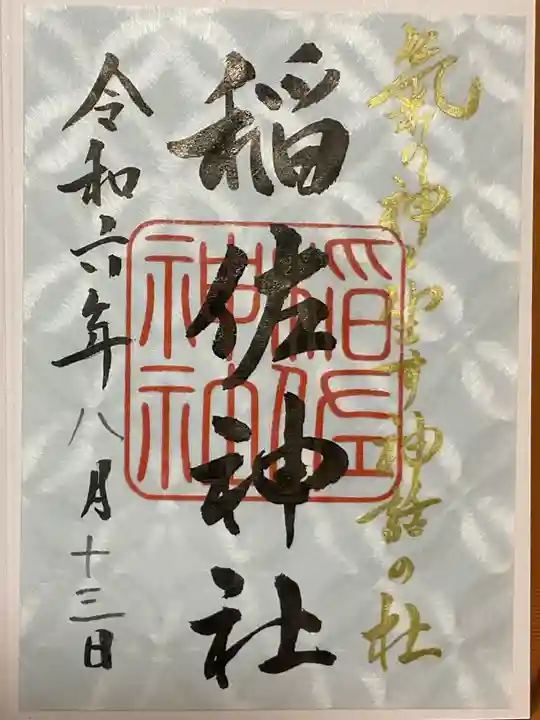 神 す神話の杜
稲佐神社
稲佐
神社
令和六年八月十三日